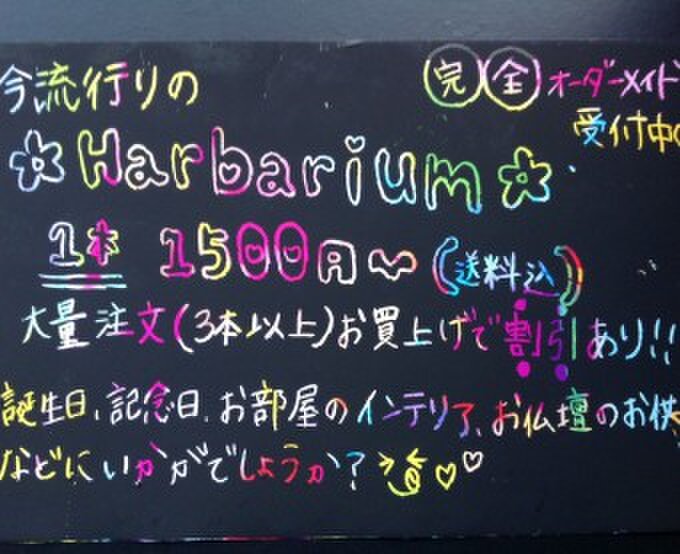 今流行りの
完全オーダーメイド
受付中
☆Harbarium☆
1本 1500円〜(送料込)
大量注文(3本以上)お買上げで割引あり!!
誕生日、記念日、お部屋のインテリア、お仏壇のお供
などにいかがでしょうか?